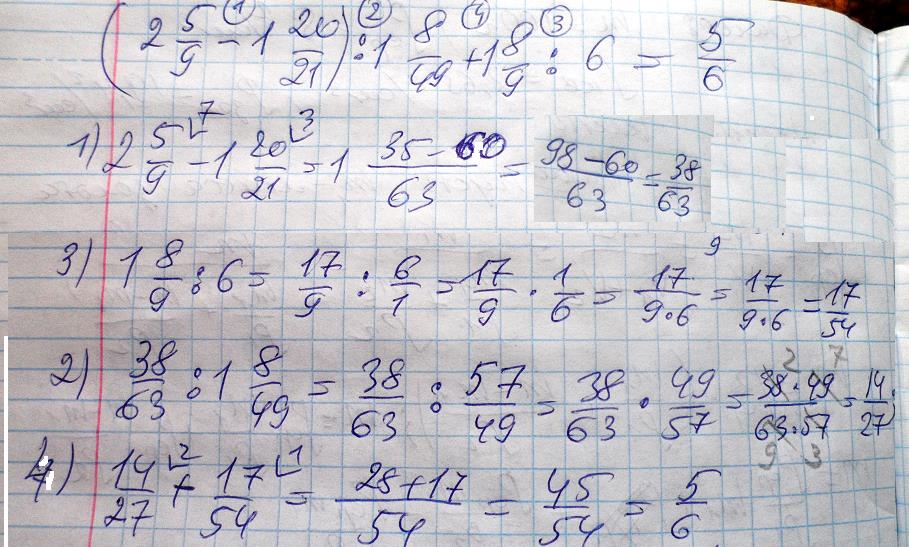 (2 5/9 - 1 20/21) : 1 8/49 + 1 8/9 : 6 = 5/6
① ② ④ ③
1) 2 5/9 ⌞7 - 1 20/21 ⌞3 = 1 (35 - 60)/63 = (98 - 60)/63 = 38/63
3) 1 8/9 : 6 = 17/9 : 6/1 = 17/9 · 1/6 = 17/(9·6) = 17/(9·6) = 17/54
9
2) 38/63 : 1 8/49 = 38/63 : 57/49 = 38/63 · 49/57 = (38·49)/(63·57) = 14/27
2 7
9 3
4) 14/27 ⌞2 + 17/54 ⌞1 = (28+17)/54 = 45/54 = 5/6